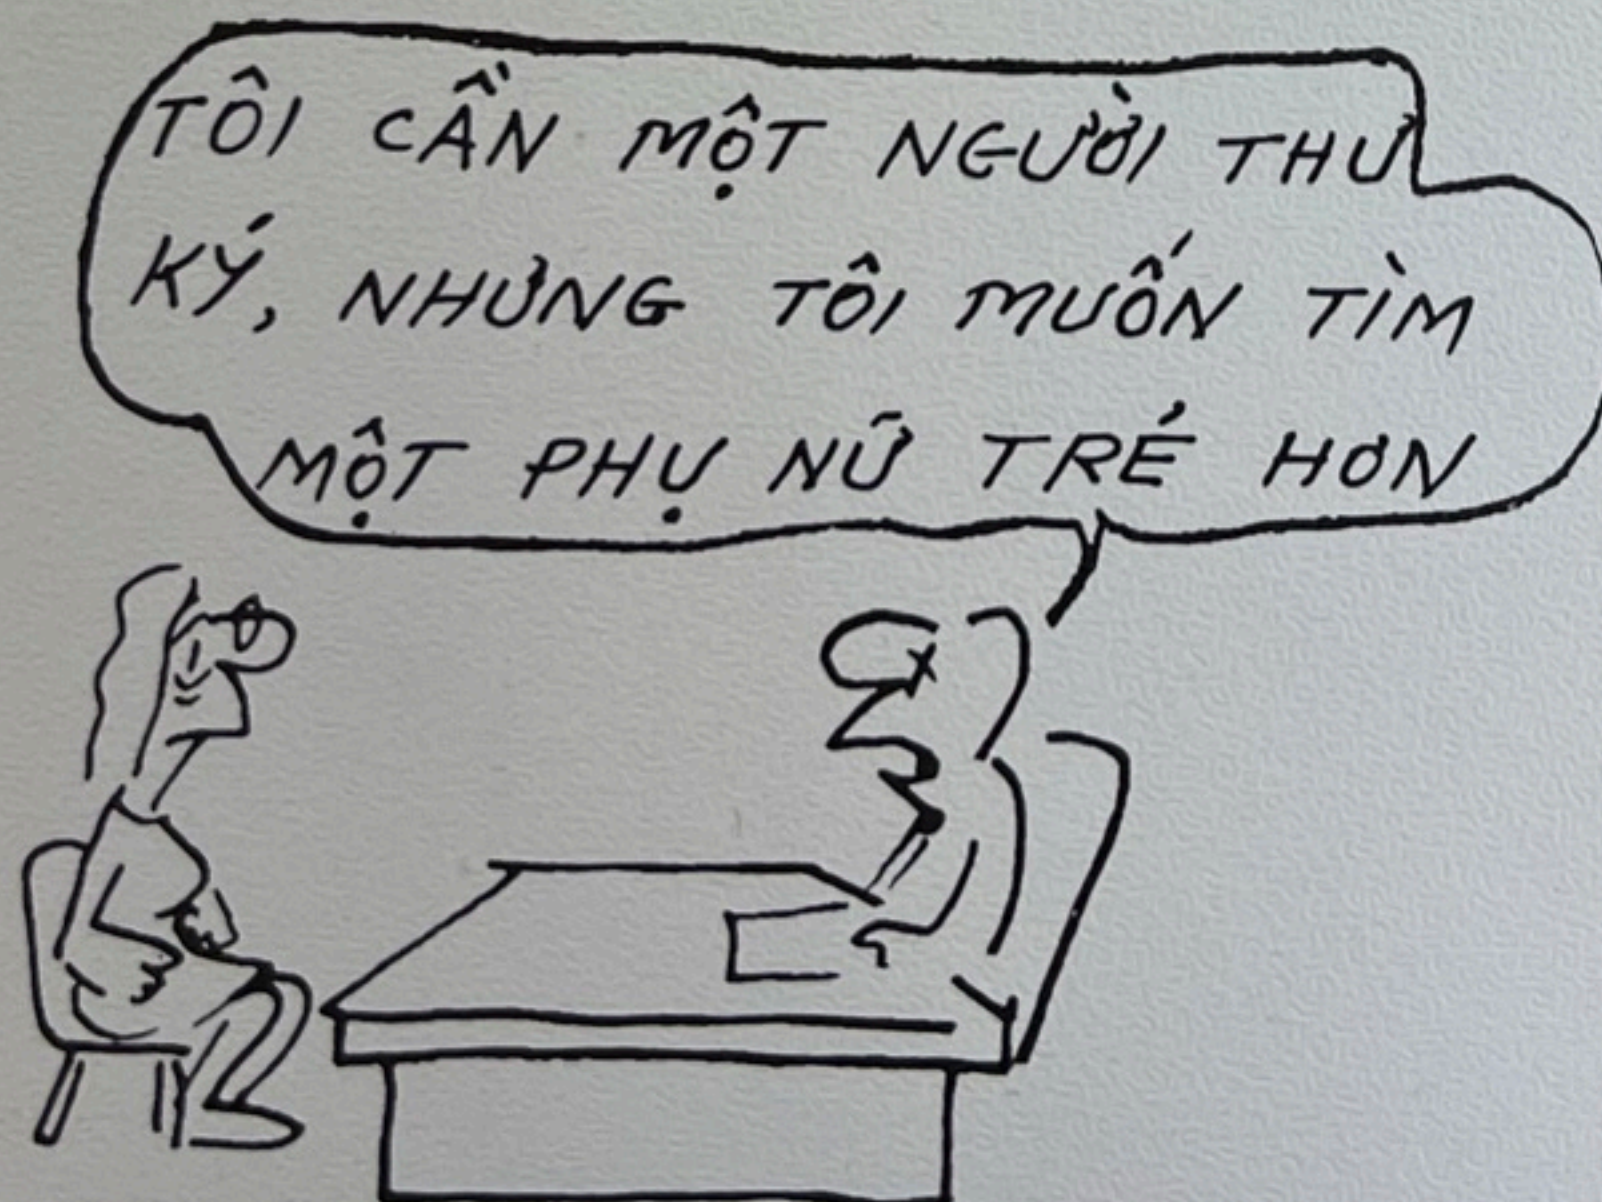 TÔI CẦN MỘT NGƯỜI THƯ
KÝ, NHƯNG TÔI MUỐN TÌM
MỘT PHỤ NỮ TRẺ HƠN